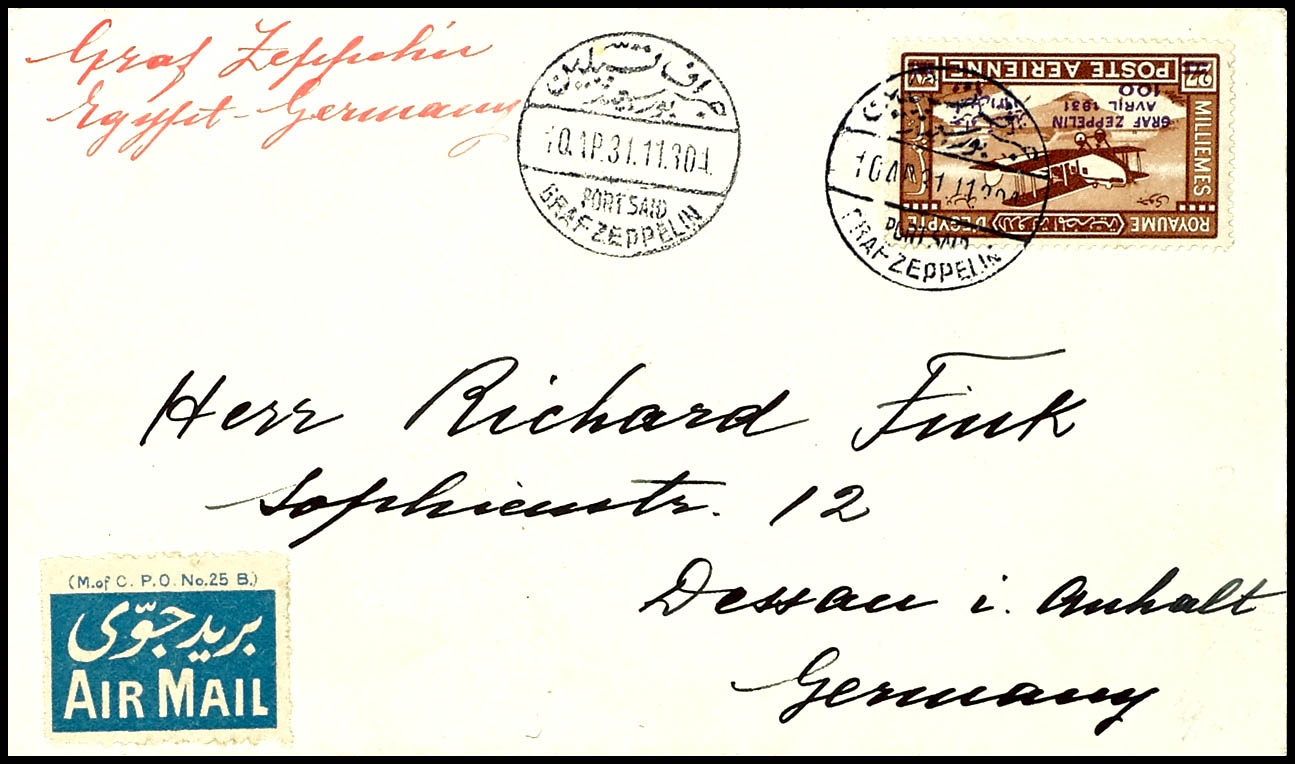 Graf Zeppelin
Egypt - Germany
جراف تسبلين
بورسعيد
10.AP.31.11.30A.
PORT SAID
GRAF ZEPPELIN
27
POSTE AÉRIENNE
٢٧
MILLIEMES
100
AVRIL 1931
GRAF ZEPPELIN
ROYAUME
الدولة المصرية
D'EGYPTE
بورسعيد
PORT SAID
GRAF ZEPPELIN
Herr Richard Fink
Sophienstr. 12
Dessau i. Anhalt
Germany
(M. of C. P. O. No. 25 B.)
بريد جوّى
AIR MAIL